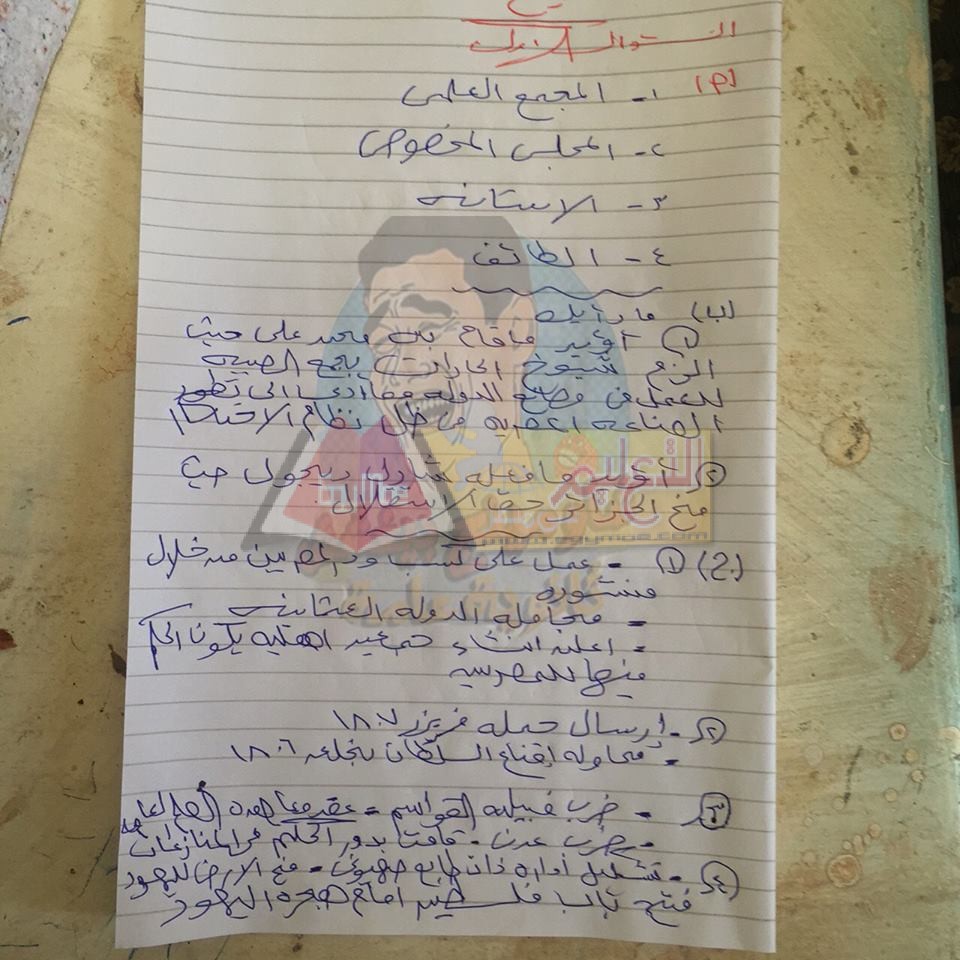 السؤال الأول
(م)
١- المجمع العلمى
٢- المجلس المخصوص
٣- الاستانه
٤- الطائف
(ب) ما رأيك
١ أؤيد ما قام به محمد على حيث
الزم شيوخ الحارات بجمع الصبيه
للعمل فى مصانع الدوله مما أدى الى تطور
الصناعه المصريه فى ظل نظام الاحتكار
٢ أؤيد ما فعله شارل ديجول حيث
منح الجزائر حق الاستقلال
(ج) ١ - عمل على كسب ود المصريين من خلال
منشوره
- مجامله الدوله العثمانيه
- اعلن انشاء يكون الحكم
فيها للمصريين
٢ - إرسال حمله فريزر ١٨٠٧
- محاوله إقناع السلطان بخلعه ١٨٠٦
٣ - ضرب قبيله القواسم = عقد معاهده
- ضرب عدن - قامت بدور الحكم فى المنازعات
٤ - تشكيل أداره ذات طابع صهيونى - منح الارض لليهود
فتح باب فلسطين امام هجره اليهود
التعليم
www.egymoe.com